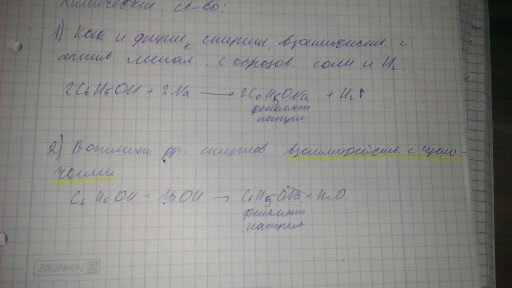 Химические св-ва:
1) Как и другие спирты, взаимодейств. с
актив метал. с образов. соли и H₂.
2C6H5OH + 2Na → 2C6H5ONa + H₂↑
фенолят
натрия
2) В отличии др. спиртов взаимодействие с щело-
чами
C6H5OH + NaOH → C6H5ONa + H₂O
фенолят
натрия
BRUNNEN